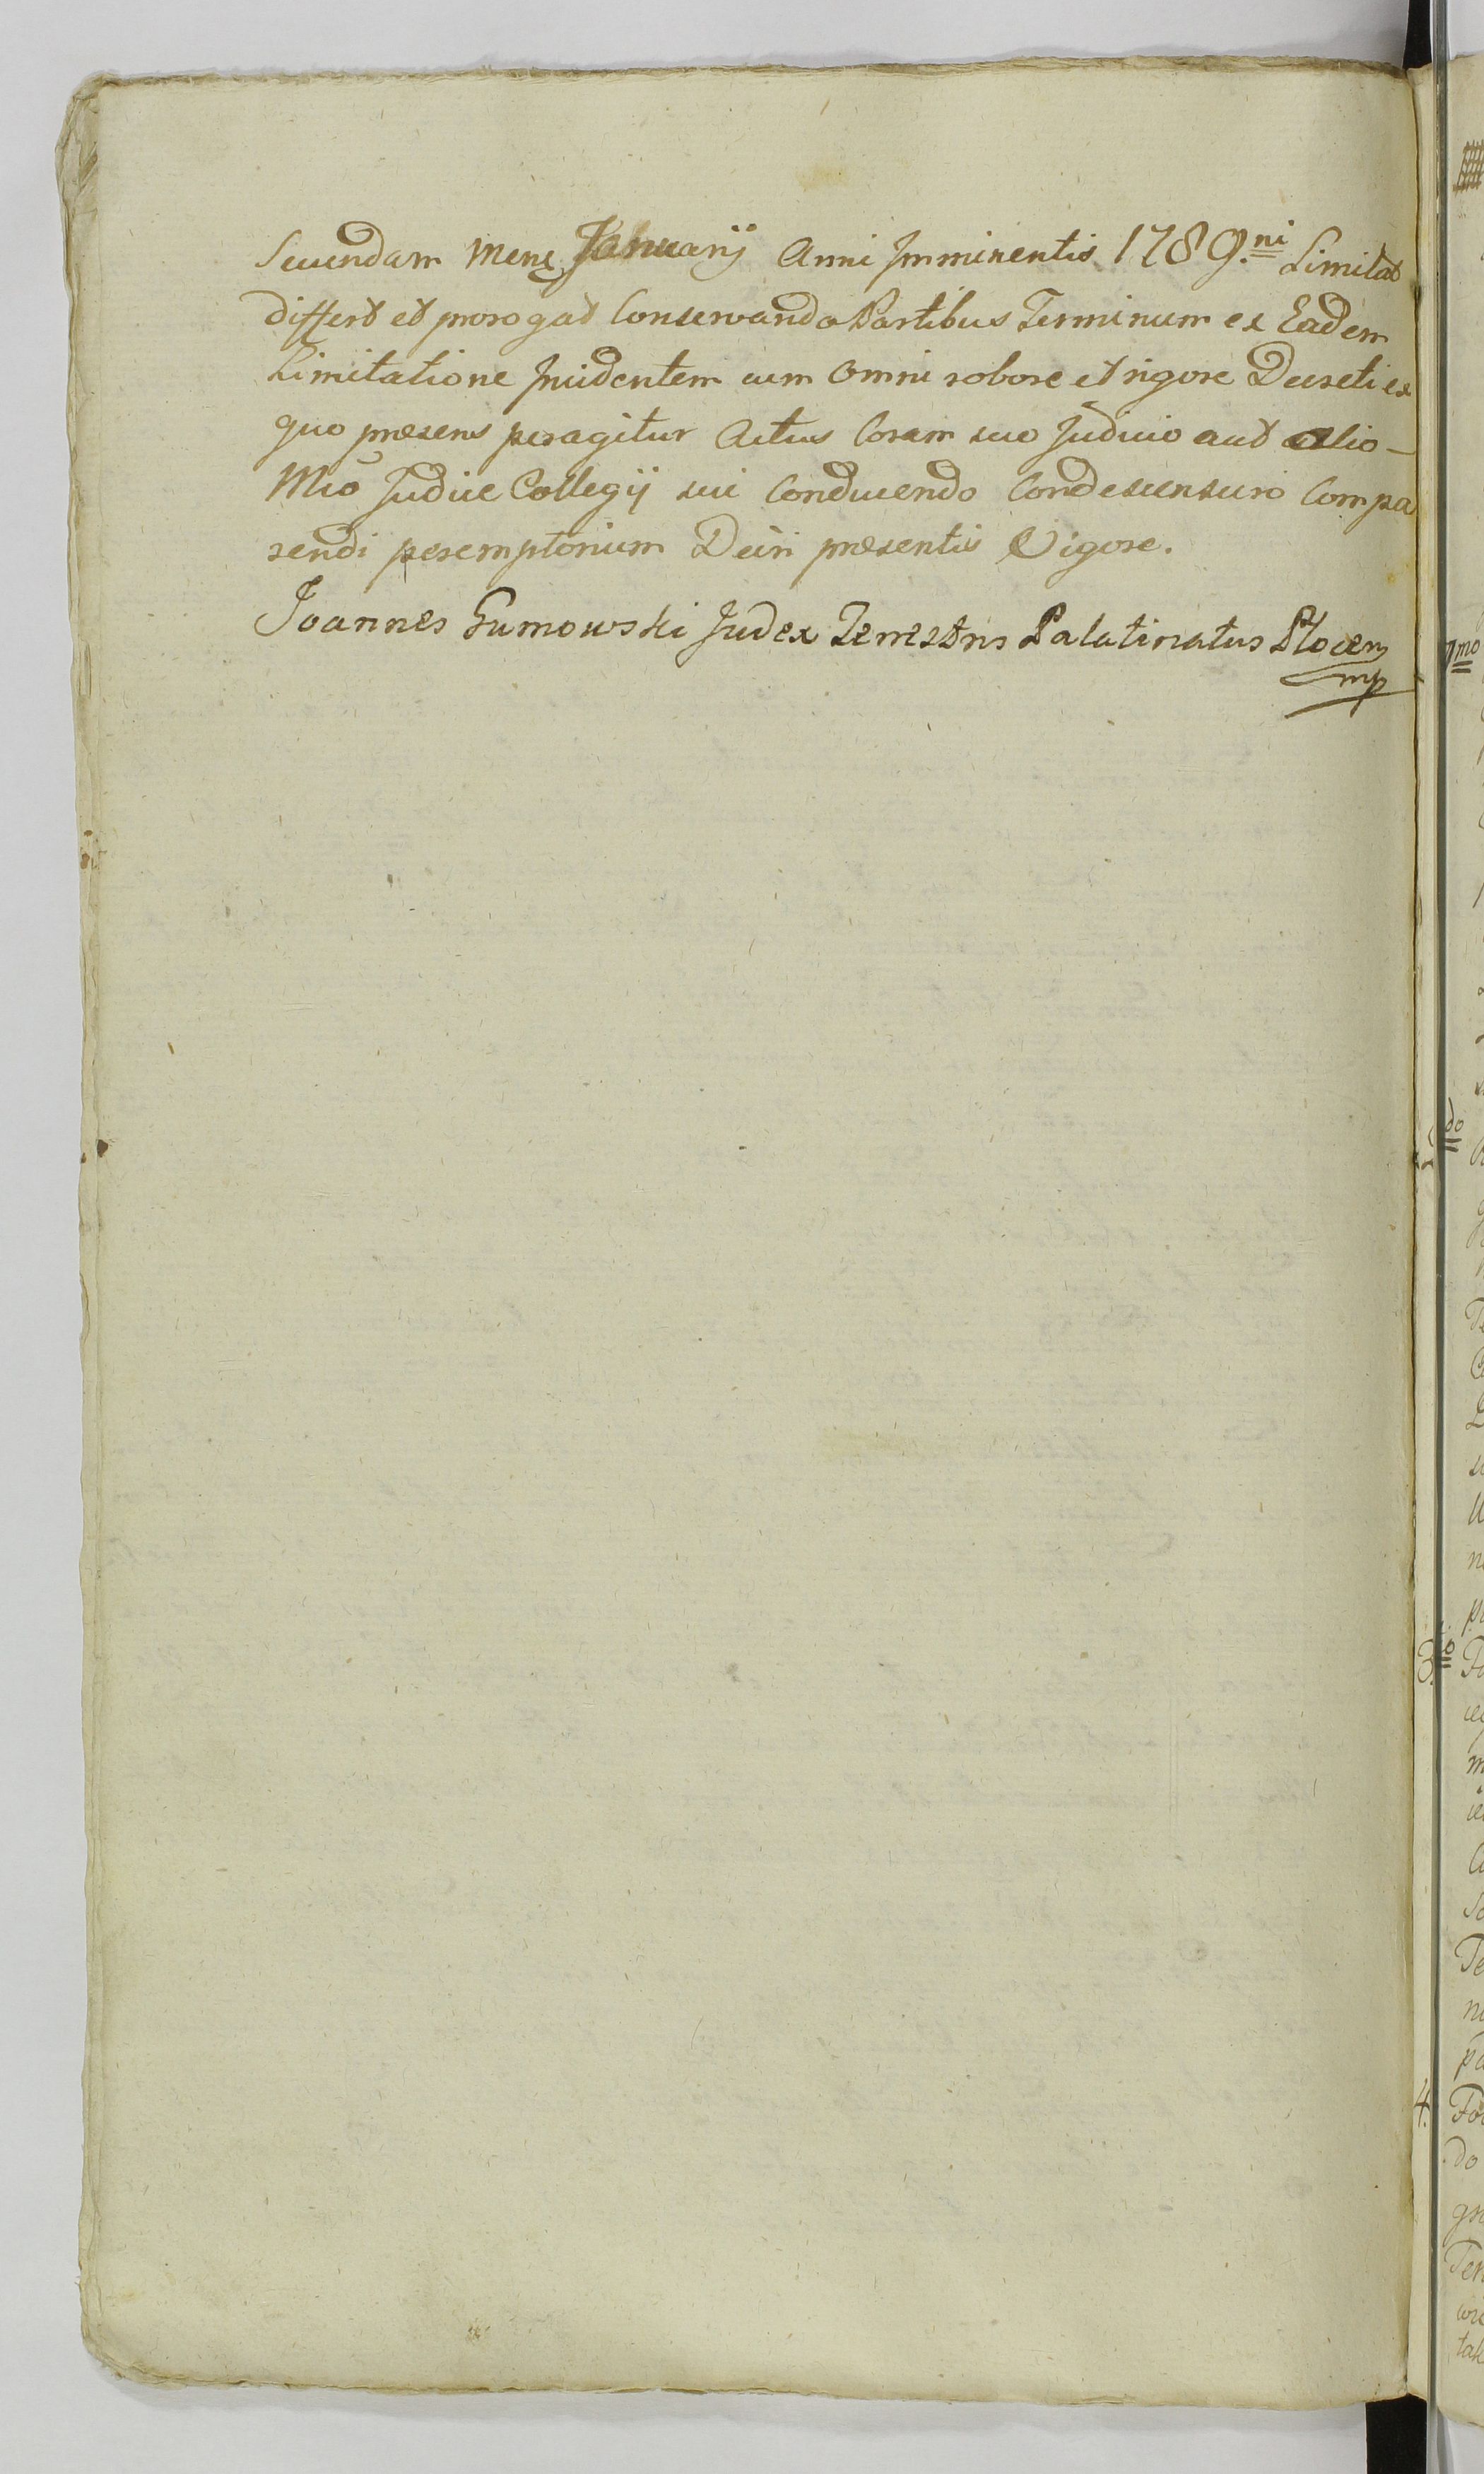 Secundam Mens Januarij Anni Imminentis 1789.ni Limitat
differt et prorogat Conservando Partibus Terminum ex Eadem
Limitatione Incidentem cum Omni robore et rigore Decreti ex
quo præsens peragitur Actus Coram suo Judicio aut alio
Mco Judice Collegij sui Conducendo Condescensuro Compa
rendi peremptorium Dcti præsentis Vigore.
Joannes Gumowski Judex Terrestris Palatinatus Plocen
mp